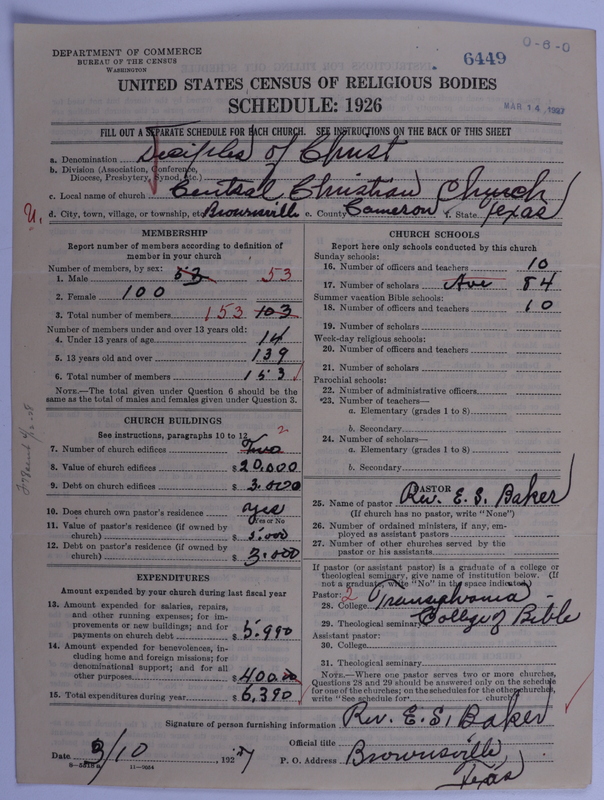 DEPARTMENT OF COMMERCE
BUREAU OF THE CENSUS
WASHINGTON
0-8-0
6449
UNITED STATES CENSUS OF RELIGIOUS BODIES
SCHEDULE: 1926
MAR 14 1927
FILL OUT A SEPARATE SCHEDULE FOR EACH CHURCH. SEE INSTRUCTIONS ON THE BACK OF THIS SHEET
a. Denomination Disciples of Christ
b. Division (Association, Conference, Diocese, Presbytery, Synod, etc.)
c. Local name of church Central Christian Church
U. d. City, town, village, or township, etc. Brownsville e. County Cameron f. State Texas
MEMBERSHIP
Report number of members according to definition of member in your church
Number of members, by sex:
1. Male 53 53
2. Female 100
3. Total number of members 153 103
Number of members under and over 13 years old:
4. Under 13 years of age 14
5. 13 years old and over 139
6. Total number of members 153
NOTE.—The total given under Question 6 should be the same as the total of males and females given under Question 3.
CHURCH BUILDINGS
See instructions, paragraphs 10 to 12
7. Number of church edifices Two 2
8. Value of church edifices $20.000
9. Debt on church edifices $3.000
10. Does church own pastor's residence yes
(Yes or No)
11. Value of pastor's residence (if owned by church) $5.000
12. Debt on pastor's residence (if owned by church) $3.000
EXPENDITURES
Amount expended by your church during last fiscal year
13. Amount expended for salaries, repairs, and other running expenses; for improvements or new buildings; and for payments on church debt $5.990
14. Amount expended for benevolences, including home and foreign missions; for denominational support; and for all other purposes $400.00
15. Total expenditures during year $6,390
CHURCH SCHOOLS
Report here only schools conducted by this church
Sunday schools:
16. Number of officers and teachers 10
17. Number of scholars Ave 84
Summer vacation Bible schools:
18. Number of officers and teachers 10
19. Number of scholars
Week-day religious schools:
20. Number of officers and teachers
21. Number of scholars
Parochial schools:
22. Number of administrative officers
23. Number of teachers—
a. Elementary (grades 1 to 8)
b. Secondary
24. Number of scholars—
a. Elementary (grades 1 to 8)
b. Secondary
PASTOR
25. Name of pastor Rev. E. S. Baker
(If church has no pastor, write "None")
26. Number of ordained ministers, if any, employed as assistant pastors
27. Number of other churches served by the pastor or his assistants
If pastor (or assistant pastor) is a graduate of a college or theological seminary, give name of institution below. (If not a graduate, write "No" in the space indicated)
Pastor: 2
28. College Transylvania
29. Theological seminary College of Bible
Assistant pastor:
30. College
31. Theological seminary
NOTE.—Where one pastor serves two or more churches, Questions 28 and 29 should be answered only on the schedule for one of the churches; on the schedules for the other churches, write "See schedule for church"
Signature of person furnishing information Rev. E. S. Baker
Official title
Date 3/10 1927
P. O. Address Brownsville
Texas